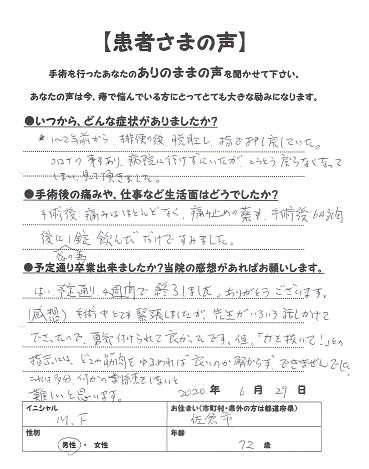 【患者さまの声】
手術を行ったあなたのありのままの声を聞かせて下さい。
あなたの声は今、痔で悩んでいる方にとってとても大きな励みになります。
●いつから、どんな症状がありましたか?
*1〜2年前から、排便の後、脱肛し、指で押し戻していた。
コロナの事もあり、病院に行けずにいたが、とうとう戻らなくなって
しまい、見て頂きました。
●手術後の痛みや、仕事など生活面はどうでしたか?
手術後、痛みはほとんどなく、痛み止めの薬も、手術後
後に1錠飲んだだけですみました。
念の為
●予定通り卒業出来ましたか?当院の感想があればお願いします。
はい、予定通り、4週間で終了しました。ありがとうございます。
(感想)手術中とても緊張しましたが、先生がいろいろ話しかけて
下さったので、勇気付けられて良かったです。但、「力を抜いて!」との
指示には、どこの筋肉をゆるめれば良いのか解からず、できませんでした。
これは多分、何かの練習をしないと
難しいと思います。
2020年 6月 29日
イニシャル
M.F
お住まい(市町村・県外の方は都道府県)
佐倉市
性別
男性・女性
年齢
72歳